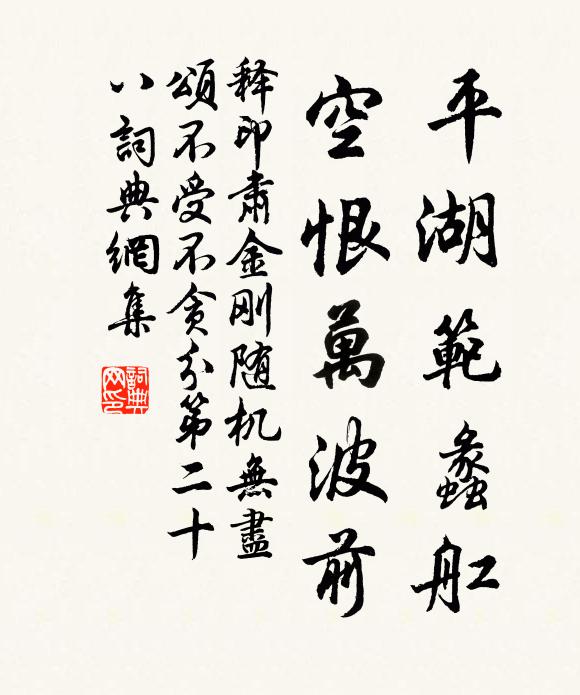 平湖範蠡舡
空恨萬波前
释印肅金刚随机無盡
頌不受不貪分第二十
八詞典網集
詞典
网印